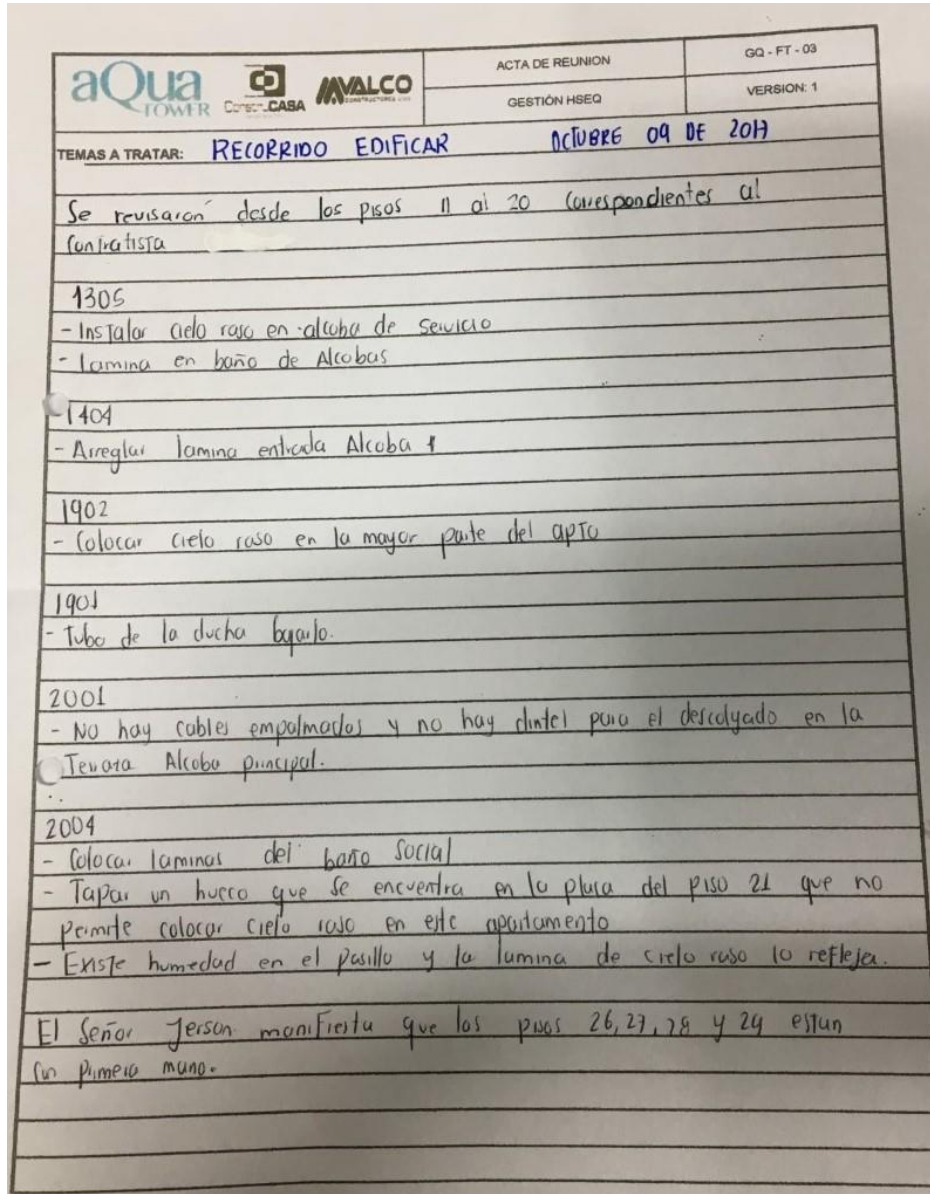 aQua TOWER
Constru-CASA
MVALCO
CONSTRUCTORES
ACTA DE REUNION
GQ - FT - 03
GESTIÓN HSEQ
VERSION: 1
TEMAS A TRATAR: RECORRIDO EDIFICAR OCTUBRE 09 DE 2017
Se revisaron desde los pisos 11 al 20 correspondientes al
Contratista
1305
- Instalar cielo raso en alcoba de Servicio
- Lamina en baño de Alcobas
- 1404
- Arreglar lamina entrada Alcoba 1
1902
- Colocar cielo raso en la mayor parte del apto
1901
- Tubo de la ducha bajarlo.
2001
- No hay cables empalmados y no hay dintel para el descolgado en la
Terraza Alcoba principal.
2004
- Colocar laminas del baño Social
- Tapar un hueco que se encuentra en la placa del piso 21 que no
permite colocar cielo raso en este apartamento
- Existe humedad en el pasillo y la lamina de cielo raso lo refleja.
El Señor Jerson manifiesta que los pisos 26, 27, 28 y 29 estan
con primera mano.